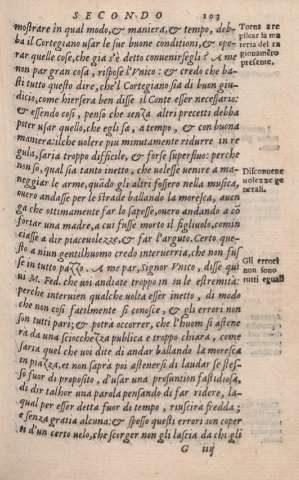 SECONDO 103
mostrare in qual modo, & maniera, & tempo, deb-
ba il Cortegiano usar le sue buone conditioni, & ope-
rar quelle cose, che già s'è detto convenirsegli? A me
non par gran cosa, rispose l'Vnico: & credo che ba-
sti tutto questo dire, che'l Cortegiano sia di buon giu-
dicio, come hiersera ben disse il Conte esser necessario:
& essendo cosi, penso che senza altri precetti debba
poter usar quello, che egli sa, a tempo, & con buona
maniera: ilche volere piu minutamente ridurre in re-
gula, saria troppo difficile, & forse superfluo: perche
non so, qual sia tanto inetto, che uolesse uenire a ma-
neggiar le arme, quādo gli altri fossero nella musica,
ouero andasse per le strade ballando la moresca, auen
ga che ottimamente far lo sapesse, ouero andando a cō
fortar una madre, a cui fusse morto il figliuolo, comin
ciasse a dir piaceuolezze, & far l'arguto. Certo que-
sto a niun gentilhuomo credo interuerria, che non fus
se in tutto pazzo. A me par, Signor Vnico, disse qui
ui M. Fed. che uoi andiate troppo in su le estremità:
perche interuien qualche uolta esser inetto, di modo
che non cosi facilmente si conosce, & gli errori non
son tutti pari; & potrà occorrer, che l'huom si astene
rà da una sciocchezza publica e troppo chiara, come
saria quel che uoi dite di andar ballando la moresca
in piazza, et non saprà poi astenersi di laudar se stes-
so fuor di proposito, d'usar una prosuntion fastidiosa,
di dir talhor una parola pensando di far ridere, la-
qual per esser detta fuor di tempo, riuscirà fredda;
e senza gratia alcuna: & spesso questi error son coper
ti d'un certo uelo, che scorger non gli lascia da chi gli
G iiij
Torna a re
plicar la ma
teria del ra
gionamēto
presente.
Disconuene
uolezze ge
nerali.
Gli errori
non sono
tutti eguali